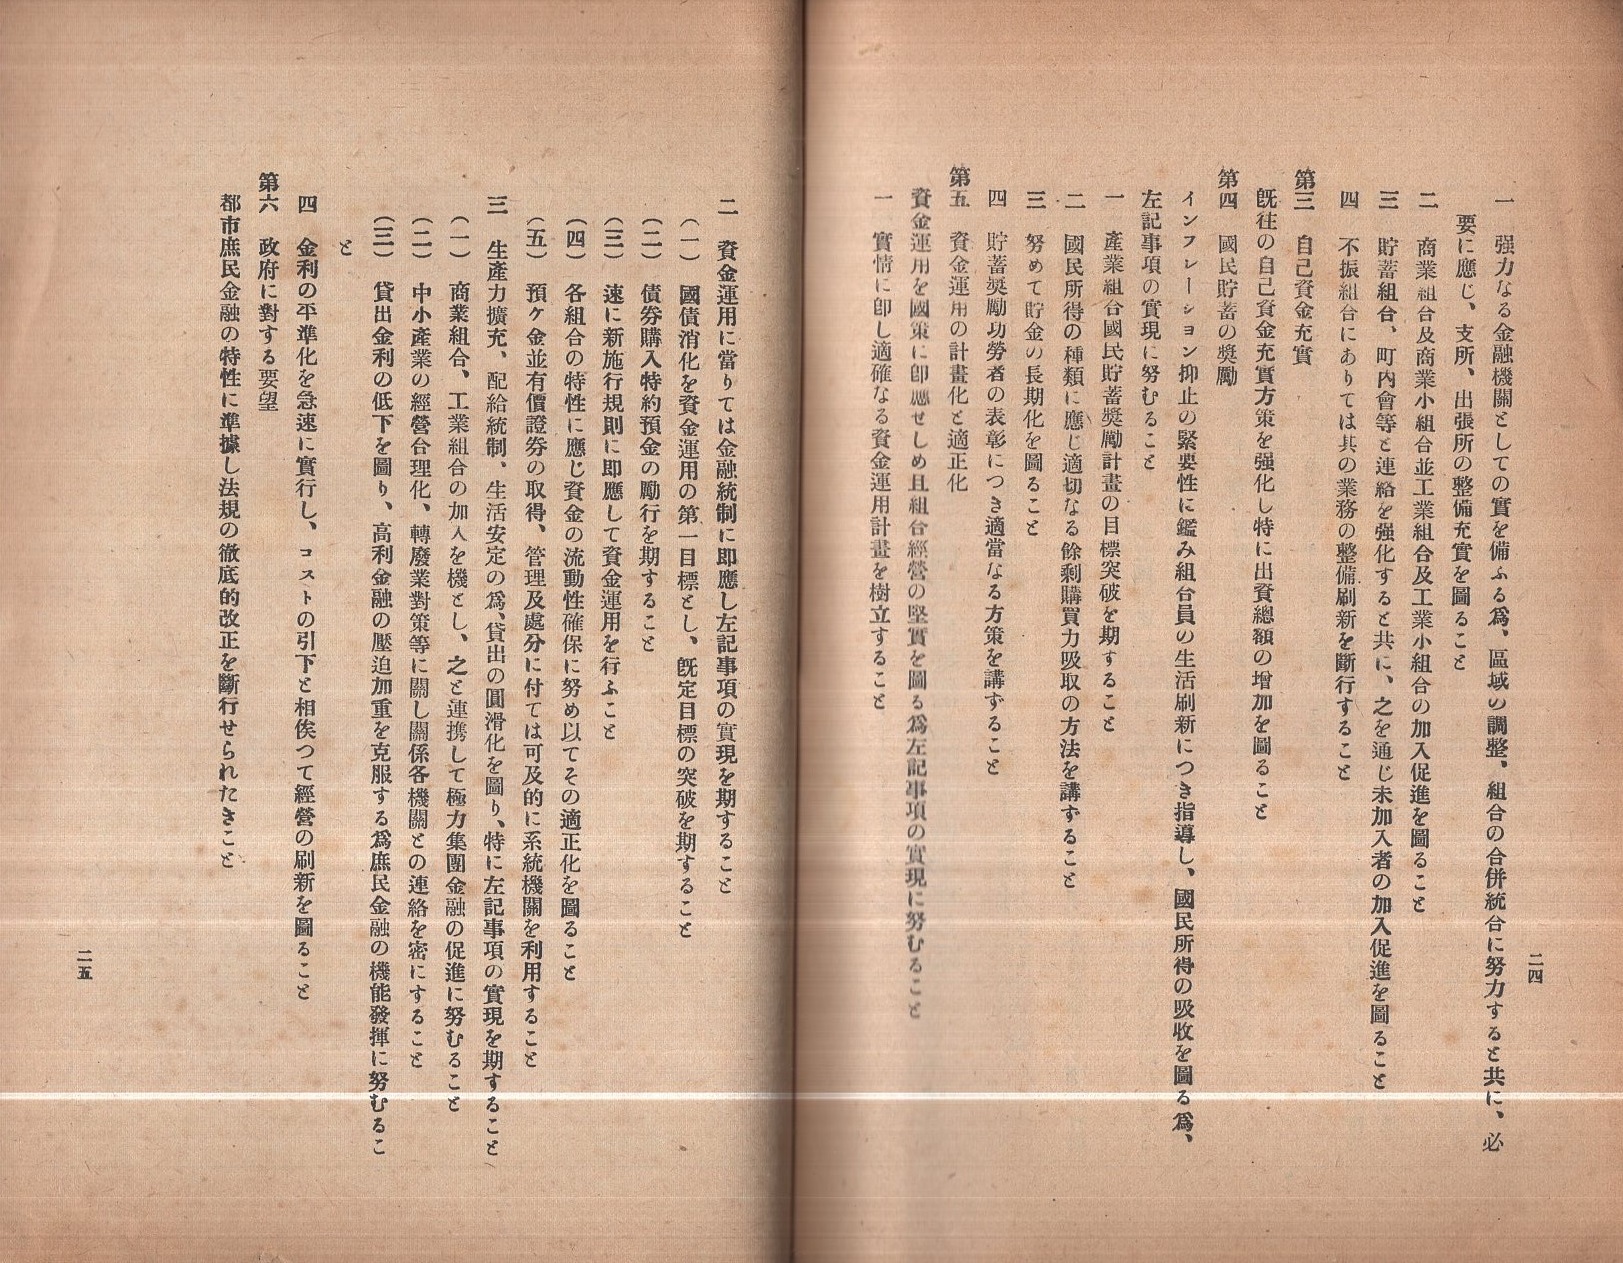 一　强力なる金融機關としての實を備ふる爲、區域の調整、組合の合併統合に努力すると共に、必
要に應じ、支所、出張所の整備充實を圖ること
二　商業組合及商業小組合並工業組合及工業小組合の加入促進を圖ること
三　貯蓄組合、町内會等と連絡を强化すると共に、之を通じ未加入者の加入促進を圖ること
四　不振組合にありては共の業務の整備刷新を斷行すること
第三　自己資金充實
旣往の自己資金充實方策を强化し特に出資總額の增加を圖ること
第四　國民貯蓄の奬勵
インフレーション抑止の緊要性に鑑み組合員の生活刷新につき指導し、國民所得の吸收を圖る爲、
左記事項の實現に努むること
一　產業組合國民貯蓄奬勵計畫の目標突破を期すること
二　國民所得の種類に應じ適切なる餘剩購買力吸取の方法を講ずること
三　努めて貯金の長期化を圖ること
四　貯蓄奬勵功勞者の表彰につき適當なる方策を講ずること
第五　資金運用の計畫化と適正化
資金運用を國策に卽應せしめ且組合經營の堅實を圖る爲左記事項の實現に努むること
一　實情に卽し適確なる資金運用計畫を樹立すること
二四
二　資金運用に當りては金融統制に卽應し左記事項の實現を期すること
（一）　國債消化を資金運用の第一目標とし、旣定目標の突破を期すること
（二）　債券購入特約預金の勵行を期すること
（三）　速に新施行規則に卽應して資金運用を行ふこと
（四）　各組合の特性に應じ資金の流動性確保に努め以てその適正化を圖ること
（五）　預ケ金並有價證券の取得、管理及處分に付ては可及的に系統機關を利用すること
三　生產力擴充、配給統制、生活安定の爲、貸出の圓滑化を圖り、特に左記事項の實現を期すること
（一）　商業組合、工業組合の加入を機とし、之と連携して極力集團金融の促進に努むること
（二）　中小產業の經營合理化、轉廢業對策等に關し關係各機關との連絡を密にすること
（三）　貸出金利の低下を圖り、高利金融の壓迫加重を克服する爲庶民金融の機能發揮に努むるこ
と
四　金利の平準化を急速に實行し、コストの引下と相俟つて經營の刷新を圖ること
第六　政府に對する要望
都市庶民金融の特性に準據し法規の徹底的改正を斷行せられたきこと
二五